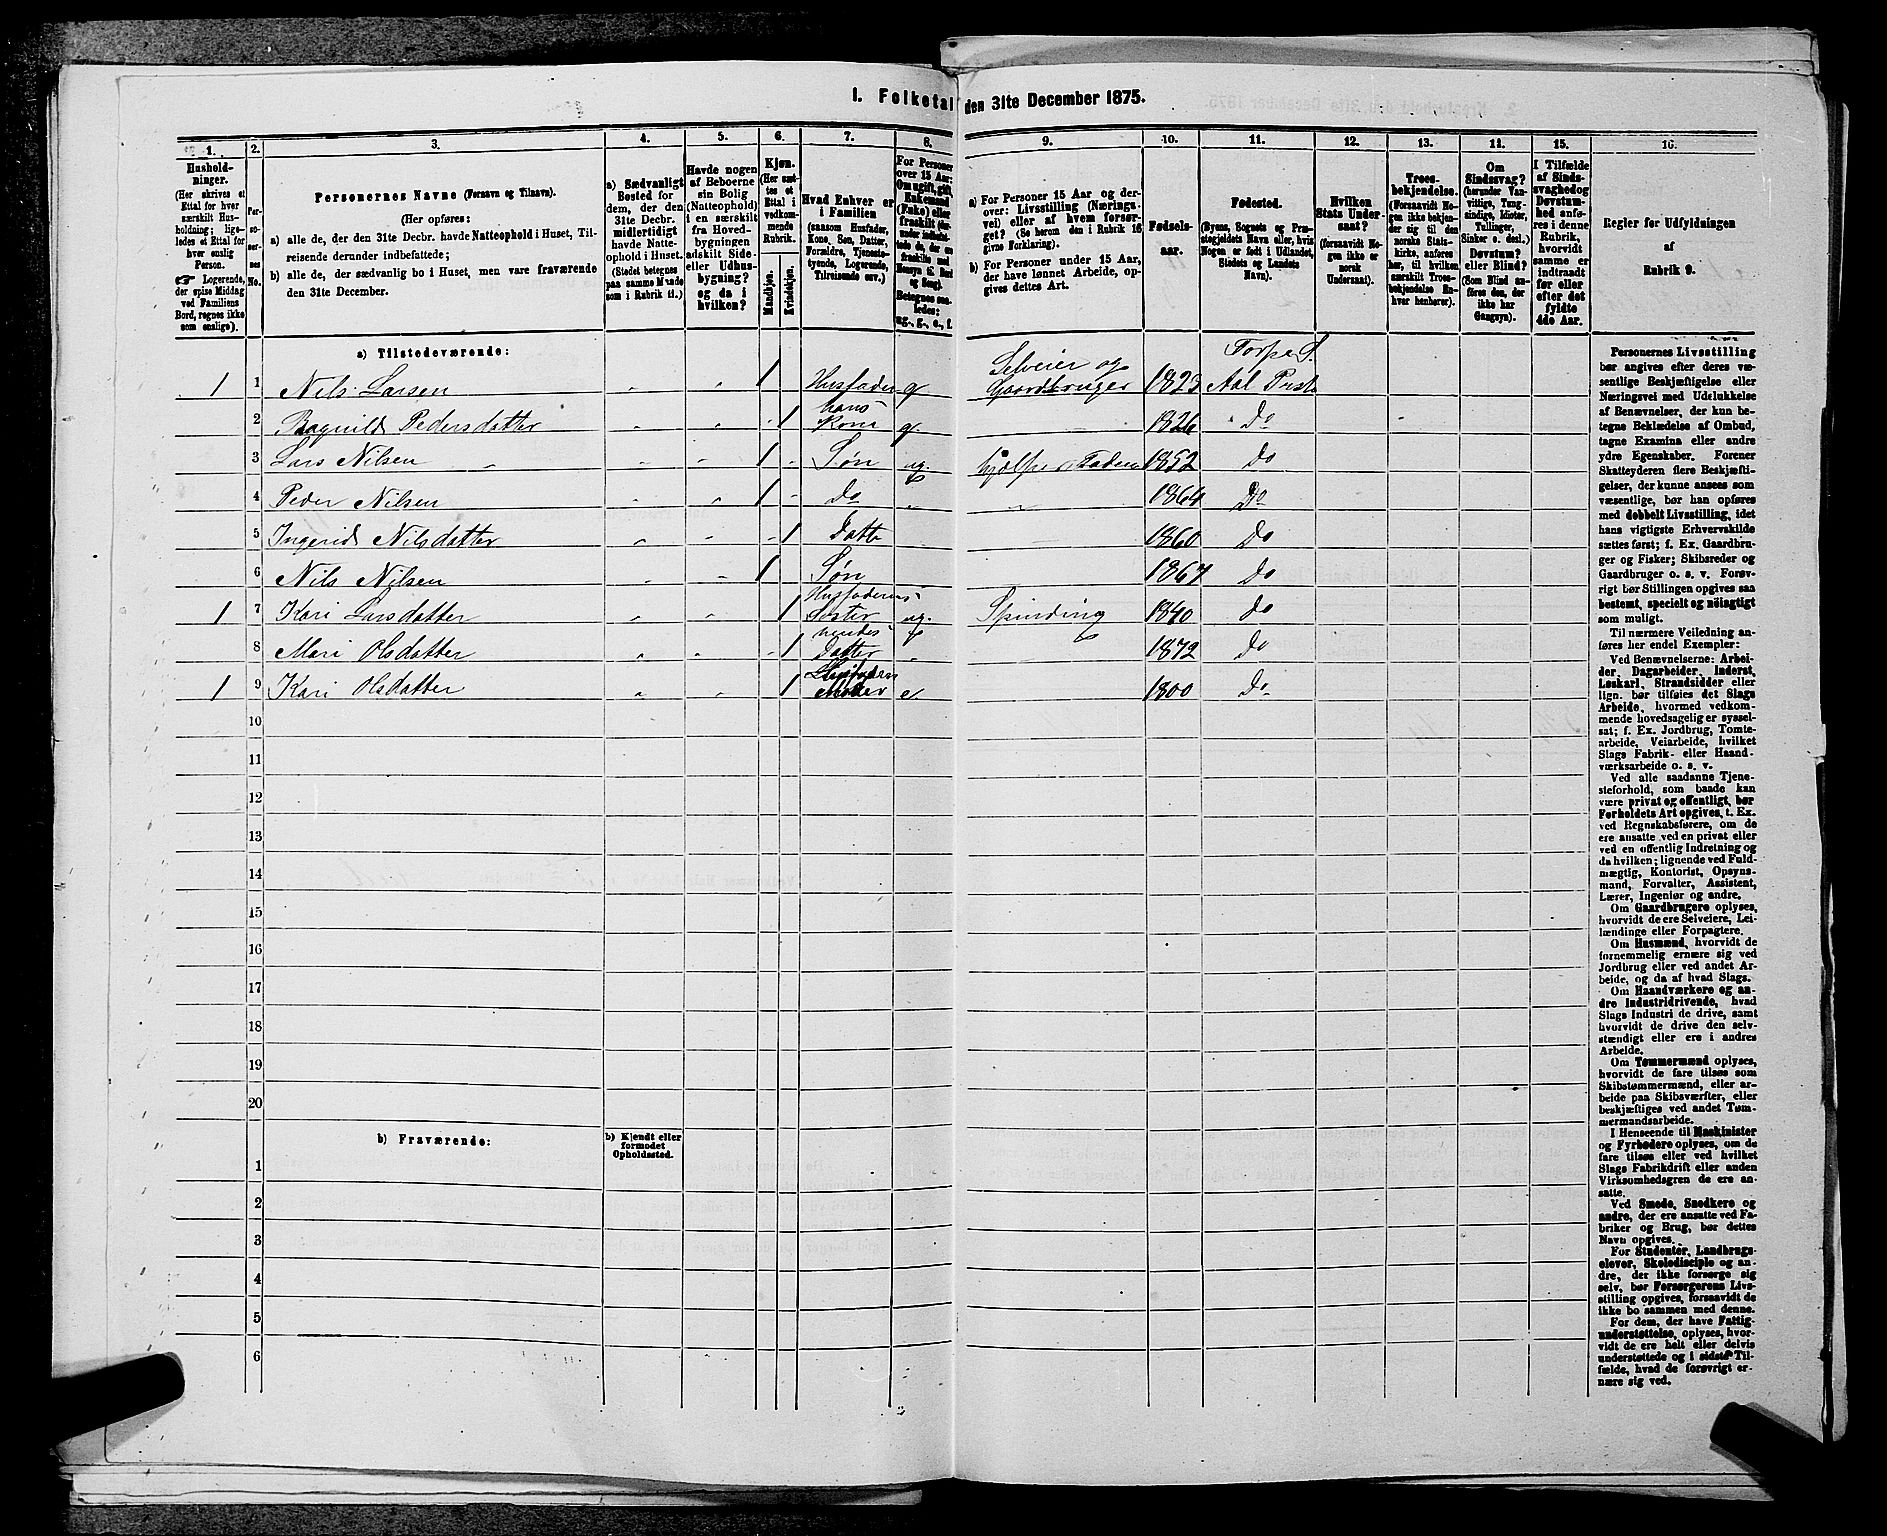 I. Folketal den 31te December 1875.
1. 2. 3. 4. 5. 6. 7. 8. 9. 10. 11. 12. 13. 14. 15. 16.
Hushold-
ninger.
(Her skrives et
Ettal for hver
særskilt Hus-
holdning; lige-
ledes et Ettal for
hver enslig
Person.
☛ Logerende,
der spise Middag
ved Familiens
Bord, regnes ikke
som enslige).
Per-
soner-
nes
No.
Personernes Navne (Fornavn og Tilnavn).
(Her opføres:
a) alle de, der den 31te Decbr. havde Natteophold i Huset, Til-
reisende derunder indbefattede;
b) alle de, der sædvanlig bo i Huset, men vare fraværende
den 31te December.
a) Sædvanligt
Bosted for
dem, der den
31te Decbr.
midlertidigt
havde Natte-
ophold i Huset.
(Stedet betegnes
paa samme Maade
som i Rubrik 11.)
Havde nogen
af Beboerne
sin Bolig
(Natteophold)
i en særskilt
fra Hoved-
bygningen
adskilt Side-
eller Udhus-
bygning?
og da i
hvilken?
Kjøn.
(Her sæt-
tes et
Ettal i
vedkom-
mende
Rubrik.
Mandkjøn.
Kvindekjøn.
Hvad Enhver er
i Familien
(saasom Husfader,
Kone, Søn, Datter,
Forældre, Tjeneste-
tyende, Logerende,
Tilreisende osv.)
For Personer
over 15 Aar:
Om ugift, gift,
Enkemand
(Enke) eller
fraskilt
Betegnes saa-
ledes:
ug., g., e., f.
a) For Personer 15 Aar og der-
over: Livsstilling (Nærings-
vei) eller af hvem forsør-
get? (Se herom den i Rubrik 16
givne Forklaring).
b) For Personer under 15 Aar,
der have lønnet Arbeide, op-
gives dettes Art.
Fødsels-
aar.
Fødested.
(Byens, Sognets og Præ-
stegjeldets Navn eller, hvis
Nogen er født i Udlandet,
Stedets og Landets
Navn).
Hvilken
Stats Under-
saat?
(forsaavidt No-
gen ikke er
norsk
Undersaat).
Troes-
bekjendelse.
(Forsaavidt No-
gen ikke bekjen-
der sig til den
norske Stats-
kirke, anføres
her, til hvilken
særskilt Troes-
bekjendelse En-
hver henhører).
Om
Sindssvag?
(herunder Van-
vittige, Tung-
sindige, Idioter,
Tullinger,
Sinker o. desl.)
Døvstum?
eller Blind?
(Som Blind an-
føres den, der
ikke har
Gangsyn).
I Tilfælde
af Sinds-
svaghed og
Døvstum-
hed anfø-
res i denne
Rubrik,
hvorvidt
samme er
indtraadt
før eller
efter det
fyldte
4de Aar.
Regler for Udfyldningen
af
Rubrik 9.
a) Tilstedeværende:
Selveier og Torpa S.
1 1 Nils Larsen " " 1 Husfader g Gaardbruger 1823 Aal Prst
2 Bagnild Pedersdatter " " 1 hans Kone g 1826 " Do
3 Lars Nilsen " " 1 Søn ug. hjælper Faderen 1852 Do
4 Peder Nilsen " " 1 Do " " 1864 Do
5 Ingerid Nilsdatter " " 1 Datte 1860 Do
6 Nils Nilsen " " 1 Søn 1867 Do
1 7 Kari Larsdatter " " 1 Husfaderens Søster ug. Spinding 1840 Do
8 Mari Olsdatter " " 1 hendes Datter " 1872 Do
1 9 Kari Olsdatter " " 1 Moder e 1800 Do
10
11
12
13
14
15
16
17
18
19
20
b) Fraværende:
b) Kjendt eller
formodet
Opholdssted.
1
2
3
4
5
6
Personernes Livsstilling
bør angives efter deres væ-
sentlige Beskjæftigelse eller
Næringsvei med Udelukkelse
af Benævnelser, der kun be-
tegne Beklædelse af Ombud,
tagne Examina eller andre
ydre Egenskaber. Forener
Skatteyderen flere Beskjæfti-
gelser, der kunne ansees som
væsentlige, bør han opføres
med dobbelt Livsstilling, idet
hans vigtigste Erhvervskilde
sættes først; f. Ex. Gaardbru-
ger og Fisker; Skibsreder og
Gaardbruger o. s. v. Forøv-
rigt bør Stillingen opgives saa
bestemt, specielt og nøiagtigt
som muligt.
Til nærmere Veiledning an-
føres her endel Exempler:
Ved Benævnelserne: Arbei-
der, Dagarbeider, Inderst,
Løskarl, Strandsidder eller
lign. bør tilføies det Slags
Arbeide, hvormed vedkom-
mende hovedsagelig er syssel-
sat; f. Ex. Jordbrug, Tomte-
arbeide, Veiarbeide, hvilket
Slags Fabrik- eller Haand-
værksarbeide o. s. v.
Ved alle saadanne Tjene-
steforhold, som baade kan
være privat og offentligt, bør
Forholdets Art opgives, t. Ex.
ved Regnskabsførere, om de
ere ansatte ved en privat eller
ved en offentlig Indretning og
da hvilken; lignende ved Fuld-
mægtig, Kontorist, Opsyns-
mand, Forvalter, Assistent,
Lærer, Ingeniør og andre.
Om Gaardbrugere oplyses,
hvorvidt de ere Selveiere, Lei-
lændinge eller Forpagtere.
Om Husmænd, hvorvidt de
fornemmelig ernære sig ved
Jordbrug eller ved andet Ar-
beide, og da af hvad Slags.
Om Haandværkere og an-
dre Industridrivende, hvad
Slags Industri de drive, samt
hvorvidt de drive den selv-
stændigt eller ere i andres
Arbeide.
Om Tømmermænd oplyses,
hvorvidt de fare tilsøs som
Skibstømmermænd, eller ar-
beide paa Skibsværfter, eller
beskjæftiges ved andet Tøm-
mermandsarbeide.
I Henseende til Maskinister
og Fyrbødere oplyses, om de
fare tilsøs eller ved hvilket
Slags Fabrikdrift eller anden
Virksomhedsgren de ere an-
satte.
Ved Smede, Snedkere og
andre, der ere ansatte ved Fa-
briker og Brug, bør dettes
Navn opgives.
For Studenter, Landbrugs-
elever, Skoledisciple og an-
dre, der ikke forsørge sig
selv, bør Forsørgerens Livs-
stilling opgives, forsaavidt de
ikke bo sammen med denne.
For dem, der have Fattig-
understøttelse, oplyses, hvor-
vidt de ere helt eller delvis
understøttede og i sidste Til-
fælde, hvad de forøvrigt er-
nære sig ved.